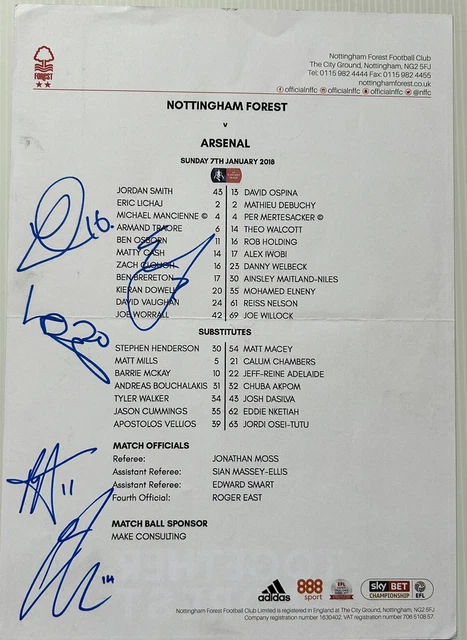 FOREST
Nottingham Forest Football Club
The City Ground, Nottingham, NG2 5FJ
Tel: 0115 982 4444 Fax: 0115 982 4455
nottinghamforest.co.uk
officialnffc officialnffc officialnffc @nffc
NOTTINGHAM FOREST
v
ARSENAL
SUNDAY 7TH JANUARY 2018
JORDAN SMITH 43 13 DAVID OSPINA
ERIC LICHAJ 2 2 MATHIEU DEBUCHY
MICHAEL MANCIENNE © 4 4 PER MERTESACKER ©
ARMAND TRAORE 6 14 THEO WALCOTT
BEN OSBORN 11 16 ROB HOLDING
MATTY CASH 14 17 ALEX IWOBI
ZACH CLOUGH 16 23 DANNY WELBECK
BEN BRERETON 17 30 AINSLEY MAITLAND-NILES
KIERAN DOWELL 20 35 MOHAMED ELNENY
DAVID VAUGHAN 24 61 REISS NELSON
JOE WORRALL 42 69 JOE WILLOCK
SUBSTITUTES
STEPHEN HENDERSON 30 54 MATT MACEY
MATT MILLS 5 21 CALUM CHAMBERS
BARRIE MCKAY 10 22 JEFF-REINE ADELAIDE
ANDREAS BOUCHALAKIS 31 32 CHUBA AKPOM
TYLER WALKER 34 43 JOSH DASILVA
JASON CUMMINGS 35 62 EDDIE NKETIAH
APOSTOLOS VELLIOS 39 63 JORDI OSEI-TUTU
MATCH OFFICIALS
Referee: JONATHAN MOSS
Assistant Referee: SIAN MASSEY-ELLIS
Assistant Referee: EDWARD SMART
Fourth Official: ROGER EAST
MATCH BALL SPONSOR
MAKE CONSULTING
16.
20
11
14
adidas 888 sport sky BET CHAMPIONSHIP EFL
Nottingham Forest Football Club Limited is registered in England at The City Ground, Nottingham, NG2 5FJ
Company registration number 1630402. VAT registration number 706 5108 57.